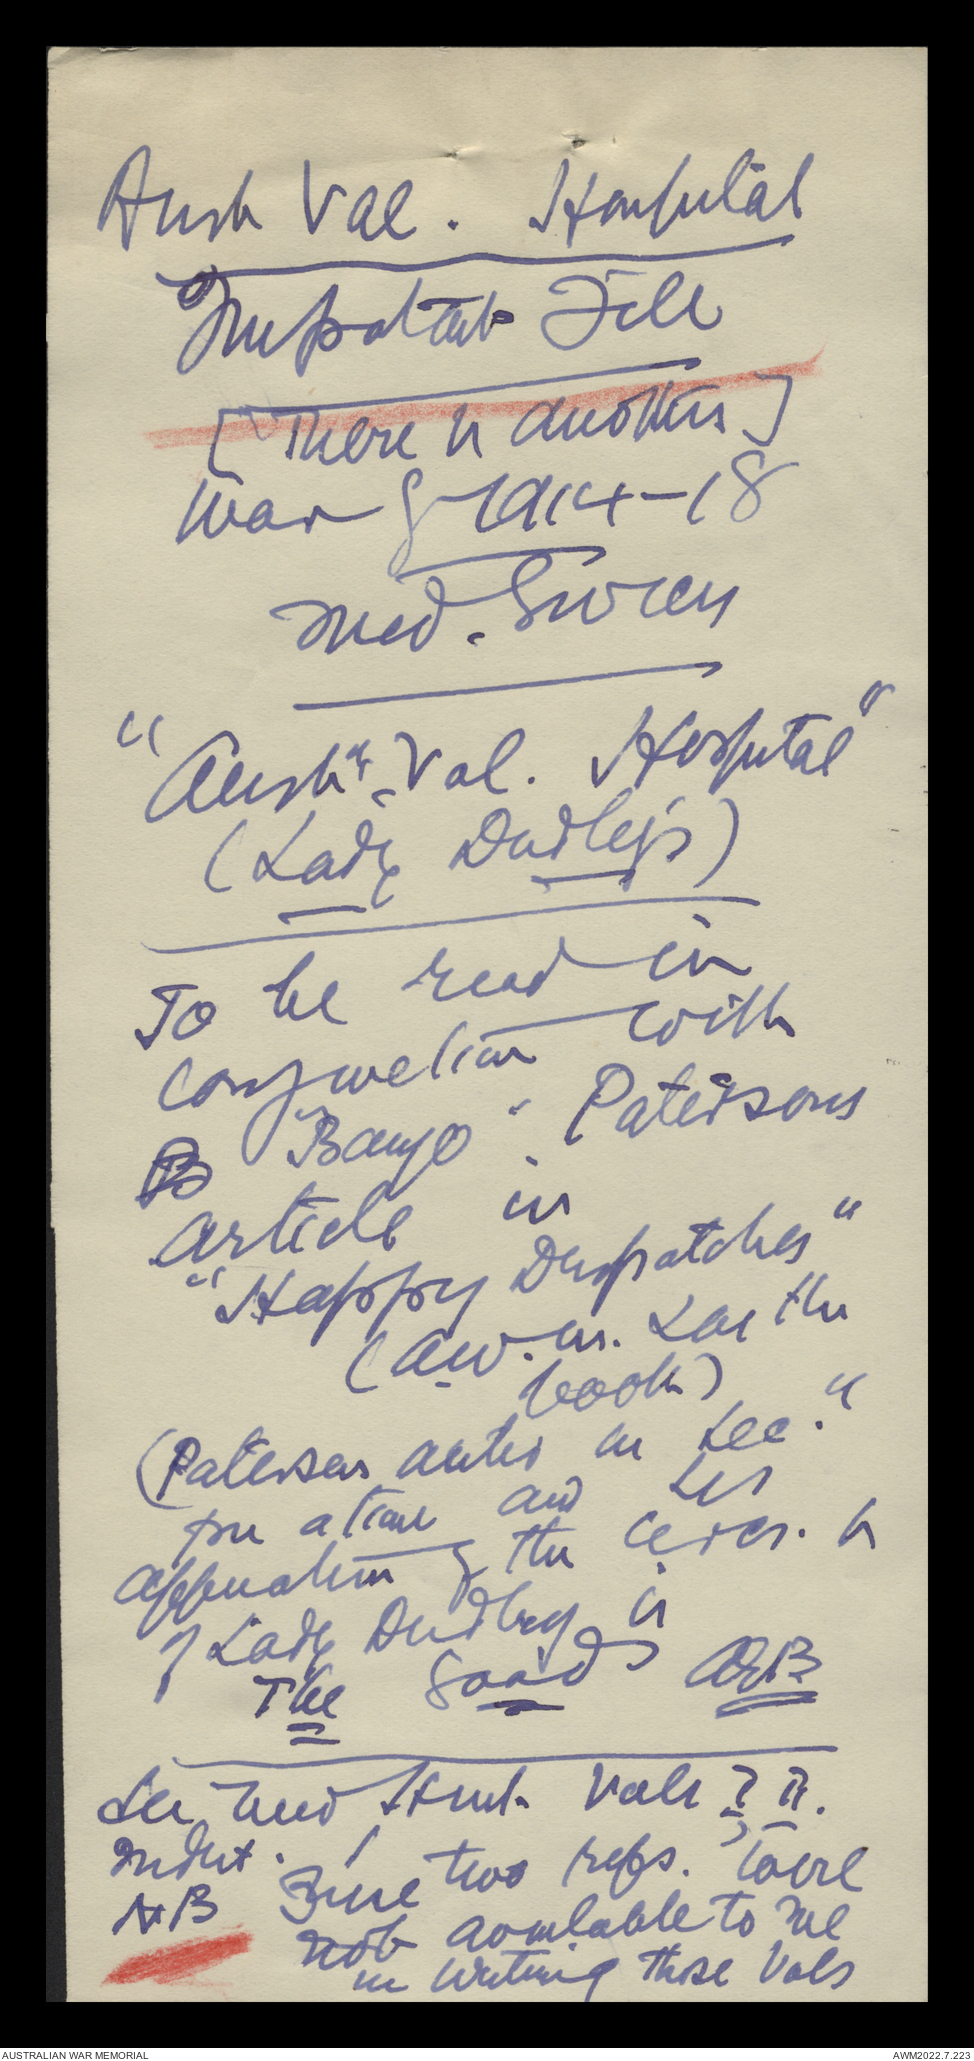 Aust Vol. Hospital
Important File
[There is another]
War of 1914-18
Med. Services
"Austn Vol. Hospital"
(Lady Dudley's)
To be read in
conjunction with
B "Banjo" Paterson's
article in
"Happy Despatches"
(A.W.M. has the
book)
(Paterson acted as Sec."
for a time and his
appreciation of the
of Lady Dudley is
The Goods AGB
See Med Hist. Vols I & II.
Index.
NB These two refs. were
not available to me
in writing those Vols
AUSTRALIAN WAR MEMORIAL
AWM2022.7.223